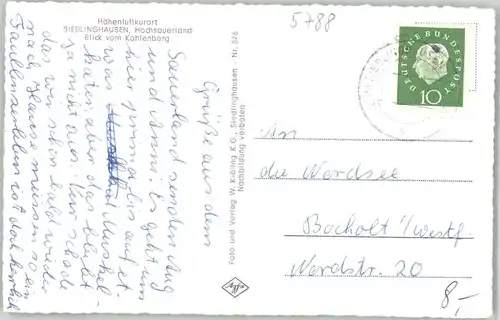 Höhenluftkurort
SIEDLINGHAUSEN, Hochsauerland
Blick vom Kahlenberg
5788
DEUTSCHE BUNDESPOST
10
Grüße aus dem
Sauerland senden Aug
und Anni. Es geht uns
hier prima bis auf et-
was Muskel-
kater, aber das bleibt
ja nicht aus. Nur schade
das wir schon bald wieder
nach Hause müssen, so ein
Faulenzerleben ist doch herrlich
Foto und Verlag W. Kübling K.G., Siedlinghausen Nr. 576
Nachbildung verboten
An
die Wordsee
Bocholt i/westf.
Nordstr. 20
8,-